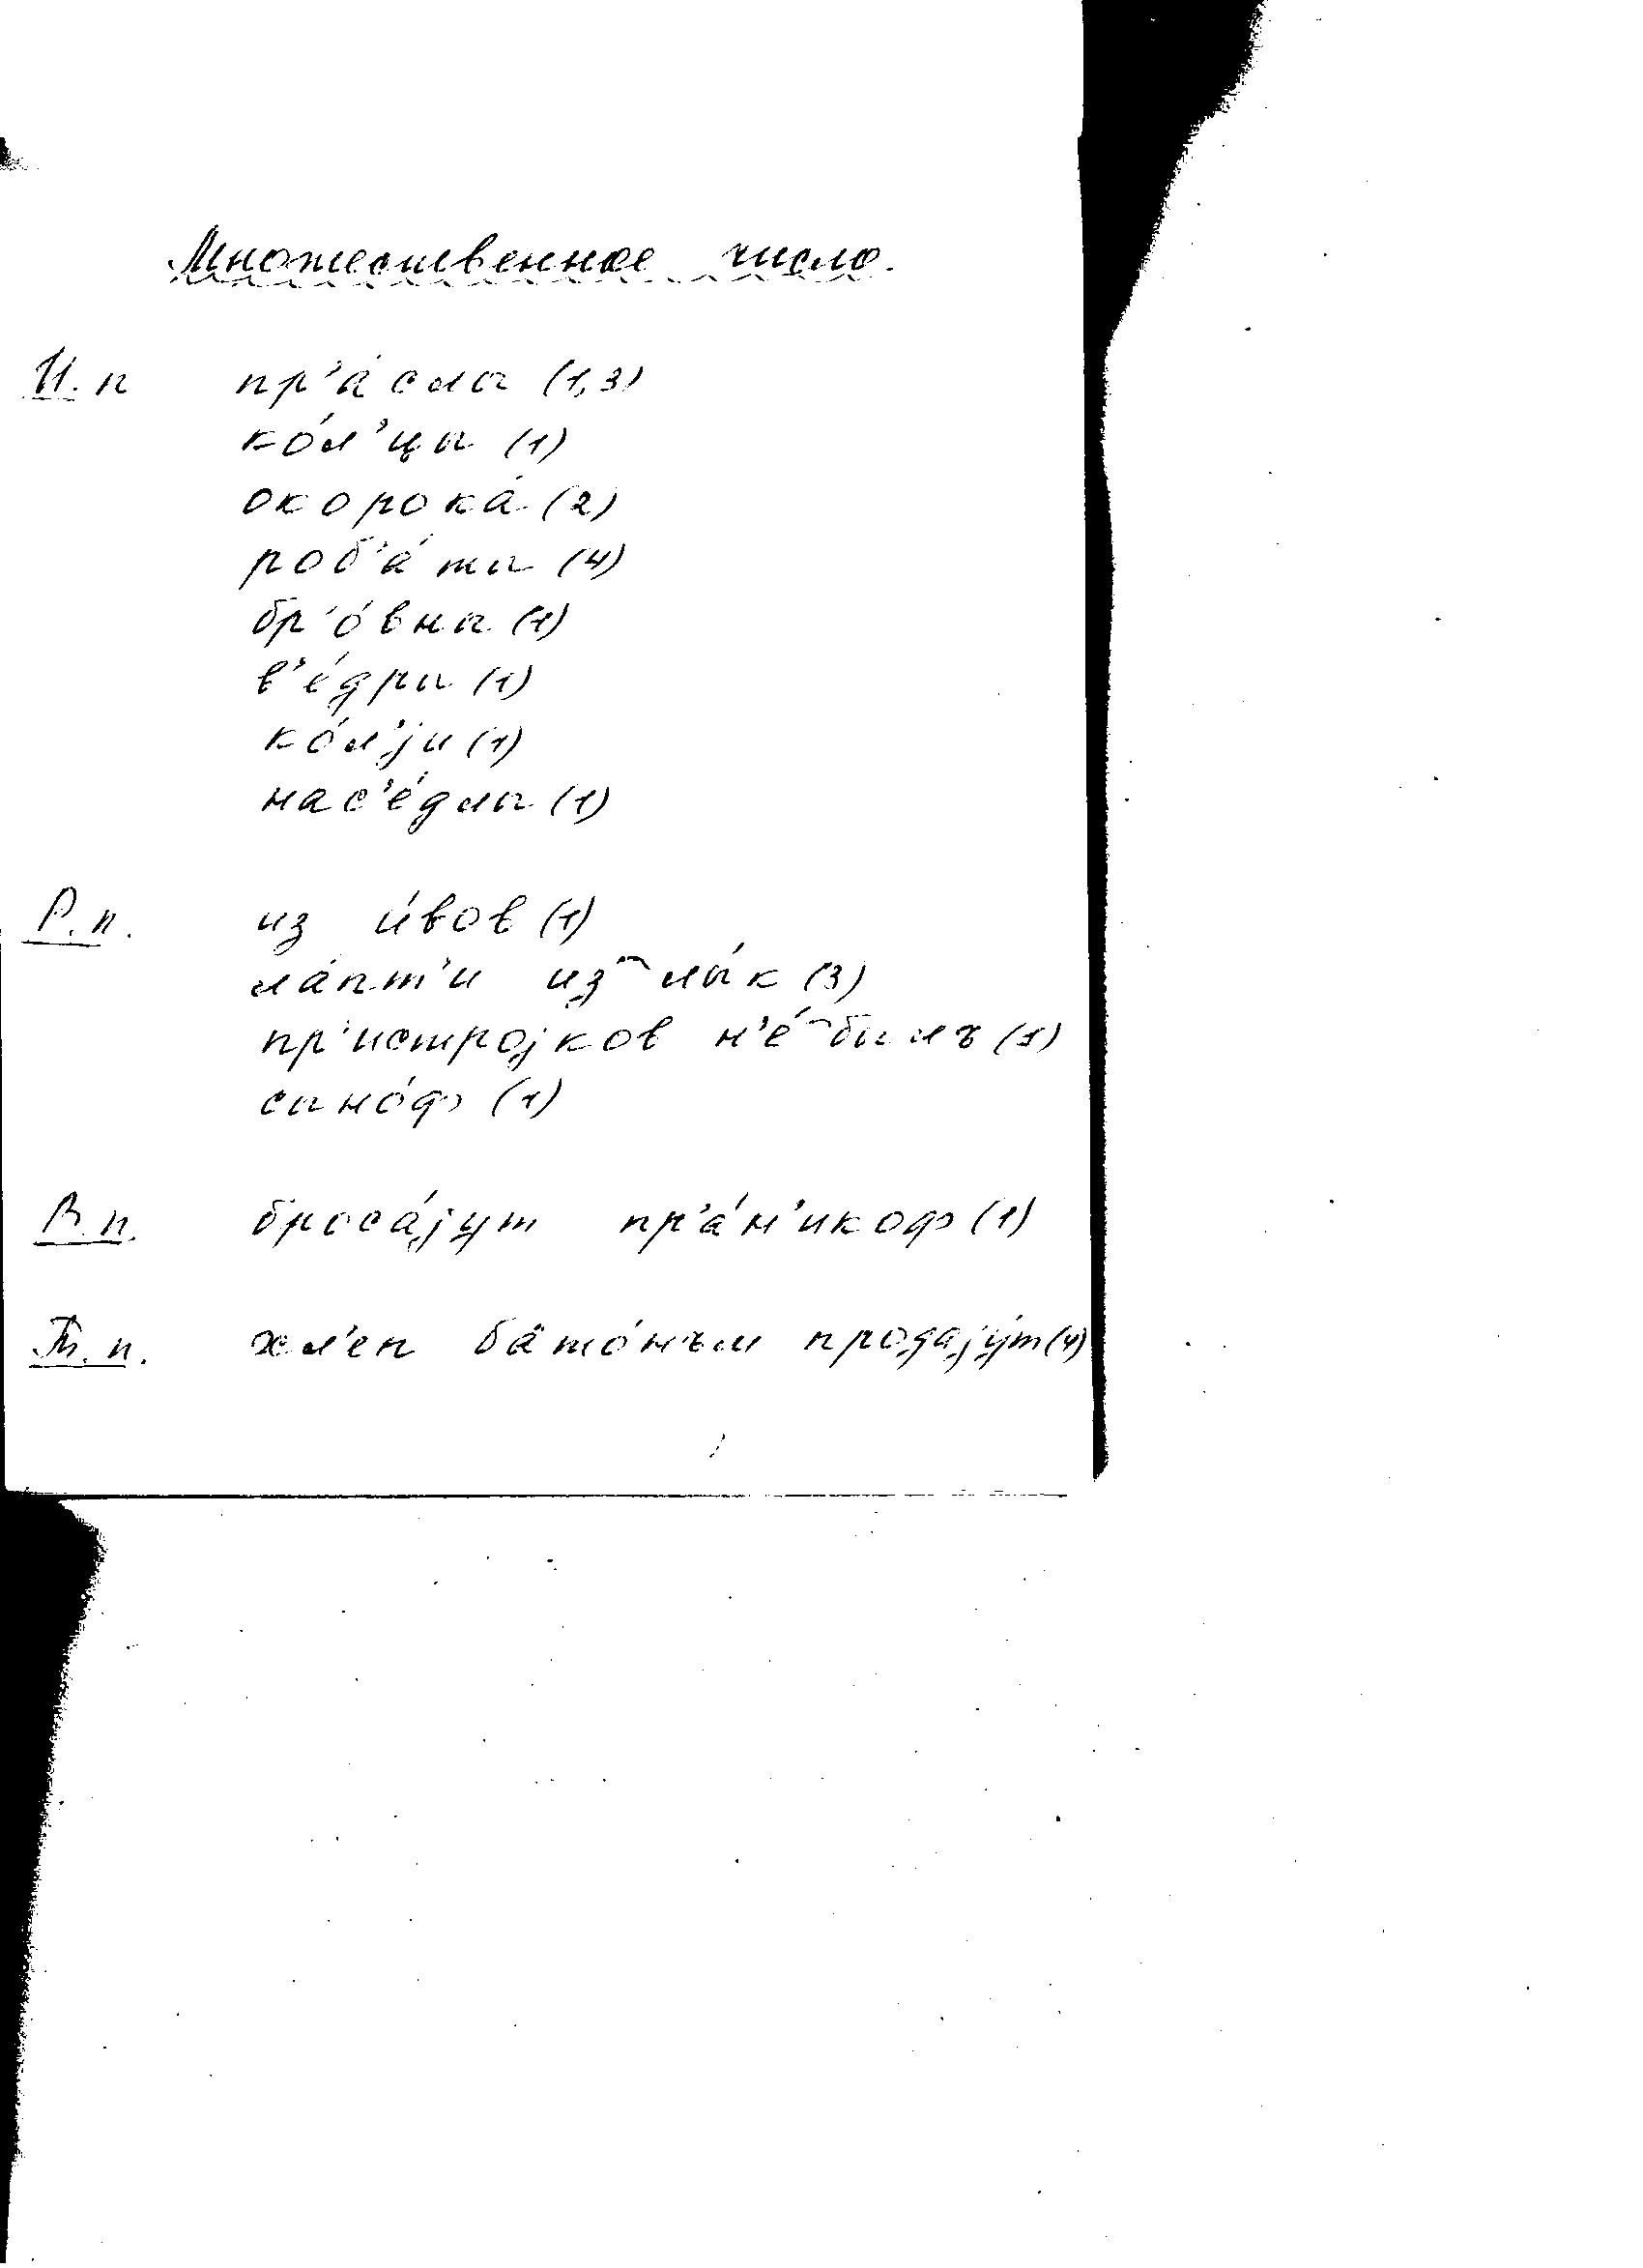 Множественное число.
И.п пр'а́слы (1,3)
ко́л'цы (1)
окорока́ (2)
роб'а́ты (4)
бр'о́вны (1)
в'е́дры (1)
ко́л'jи (1)
нас'е́длы (1)
Р.п. из и́вов (1)
ла́пт'и из͡ лы́к (3)
пр'истроjков н'е́͡ былъ (1)
сыно́ф (1)
В.п. броса́jут пр'а́н'икоф (1)
Т.п. хл'еп бато́нъм продаjу́т (4)